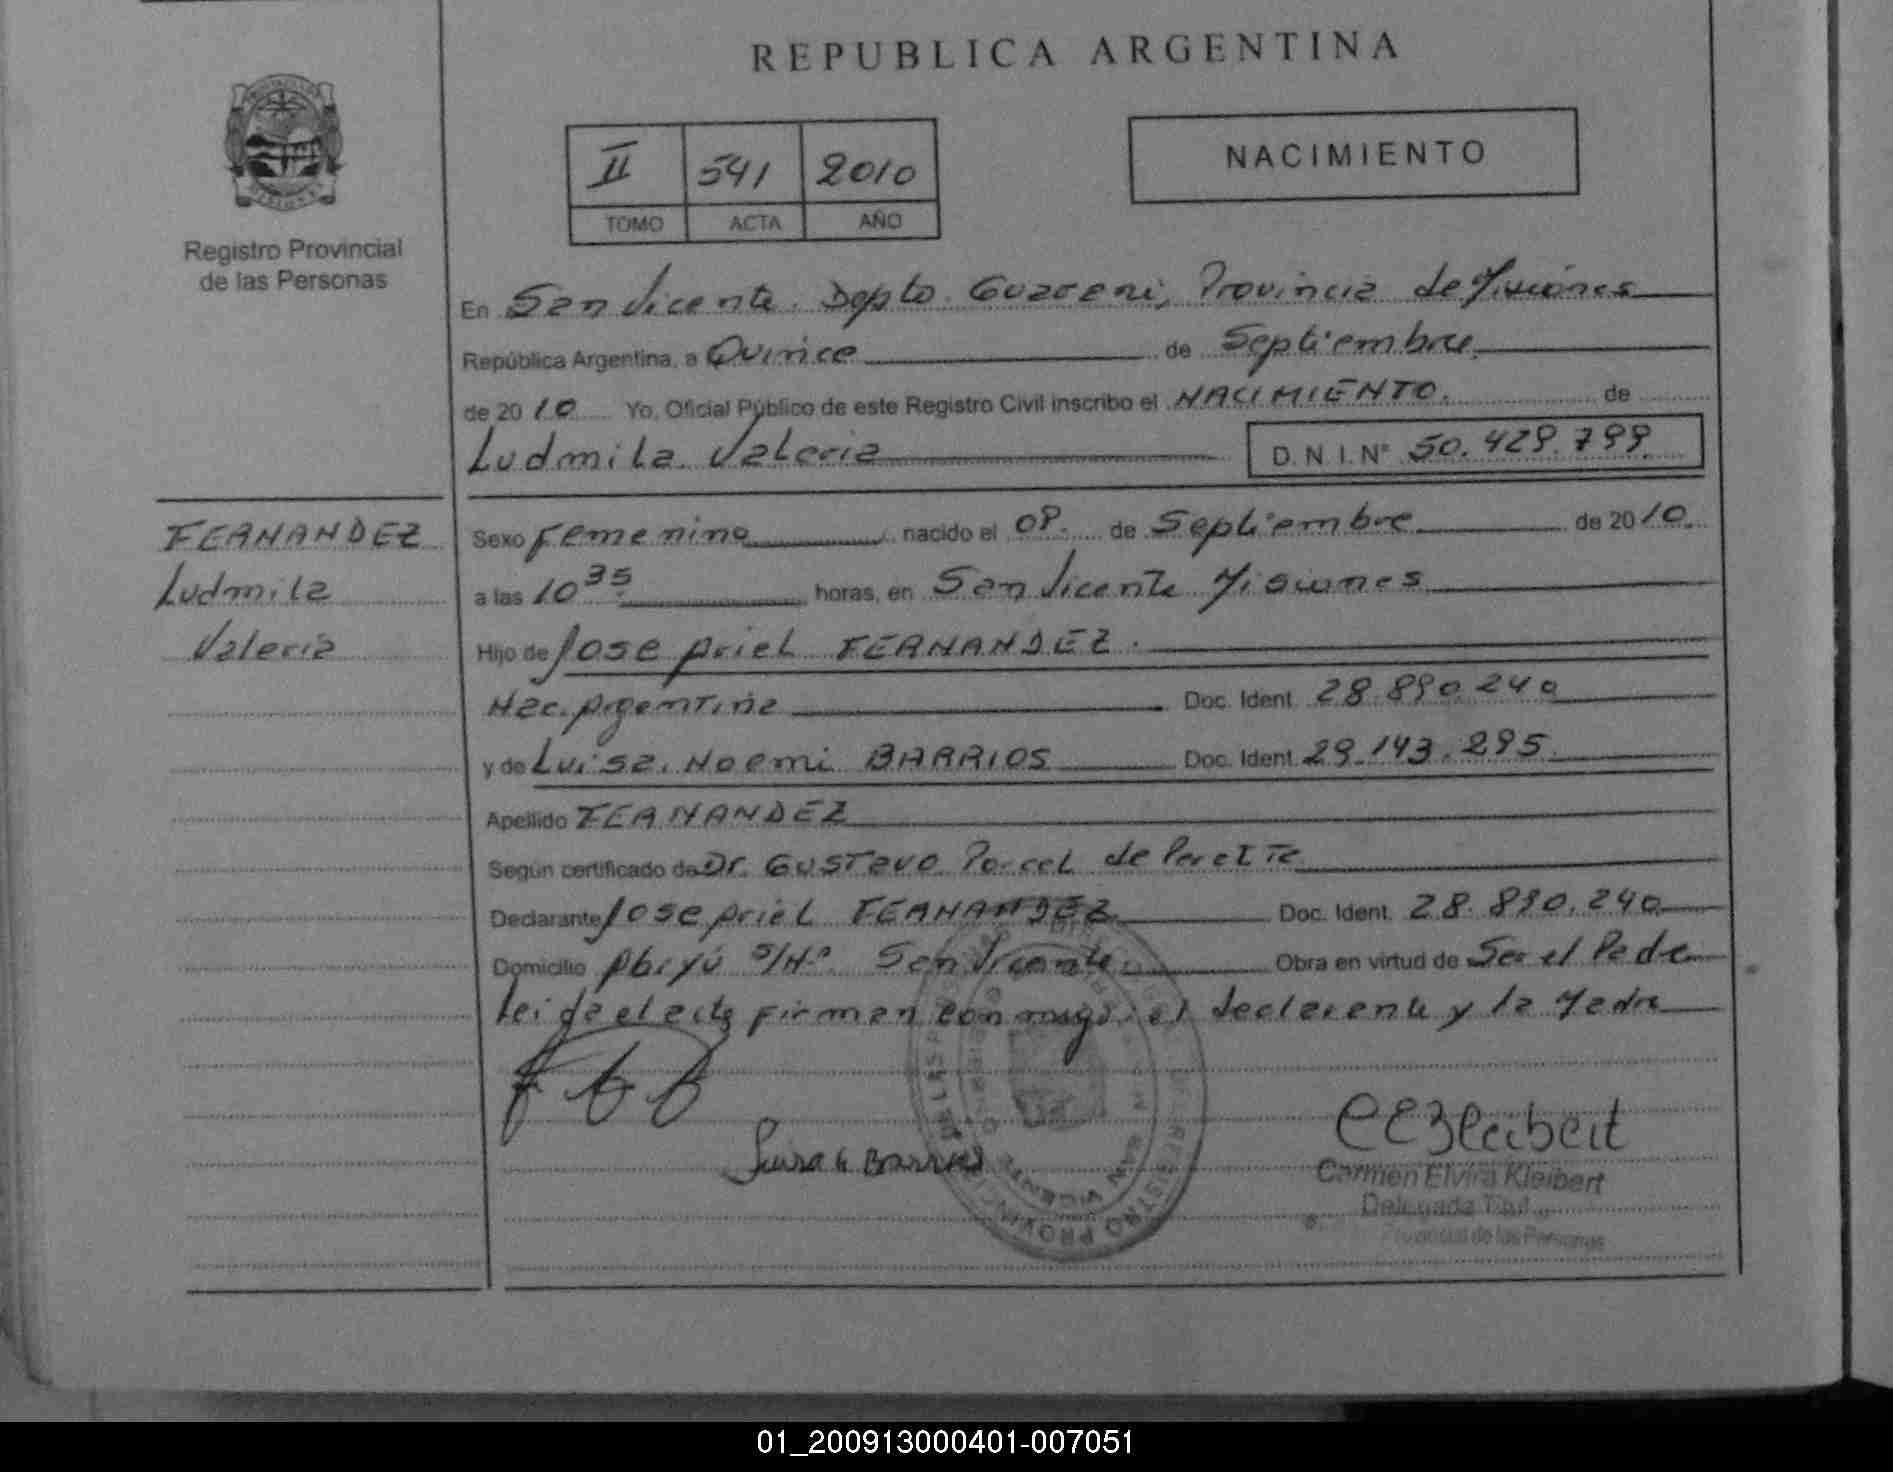 REPUBLICA ARGENTINA
Registro Provincial
de las Personas
II 541 2010
TOMO ACTA AÑO
NACIMIENTO
En San Vicente. Depto Guarani, Provincia de Misiones
República Argentina, a Quince de Septiembre.
de 2010 Yo, Oficial Público de este Registro Civil inscribo el NACIMIENTO. de
Ludmila Valeria D.N.I.Nº 50.429.799
FERNANDEZ
Ludmila
Valeria
Sexo Femenino nacido el 08. de Septiembre de 2010.
a las 10 35 horas, en San Vicente Misiones
Hijo de Jose Ariel FERNANDEZ.
Nac. Argentina Doc. Ident. 28.890.240
y de Luisa. Noemi BARRIOS Doc. Ident. 29.143.295
Apellido FERNANDEZ
Según certificado de Dr. Gustavo Porcel de Peralta
Declarante Jose Ariel FERNANDEZ Doc. Ident. 28.890.240
Domicilio S/Nº San Vicente Obra en virtud de Ser el Padre
Leida el acta firman conmigo el declarante y la Madre
Barrios
CEKleibert
Carmen Elvira Kleibert
Delegada
Provincial de las Personas
REGISTRO PROVINCIAL DE LAS PERSONAS
SAN VICENTE
01_200913000401-007051